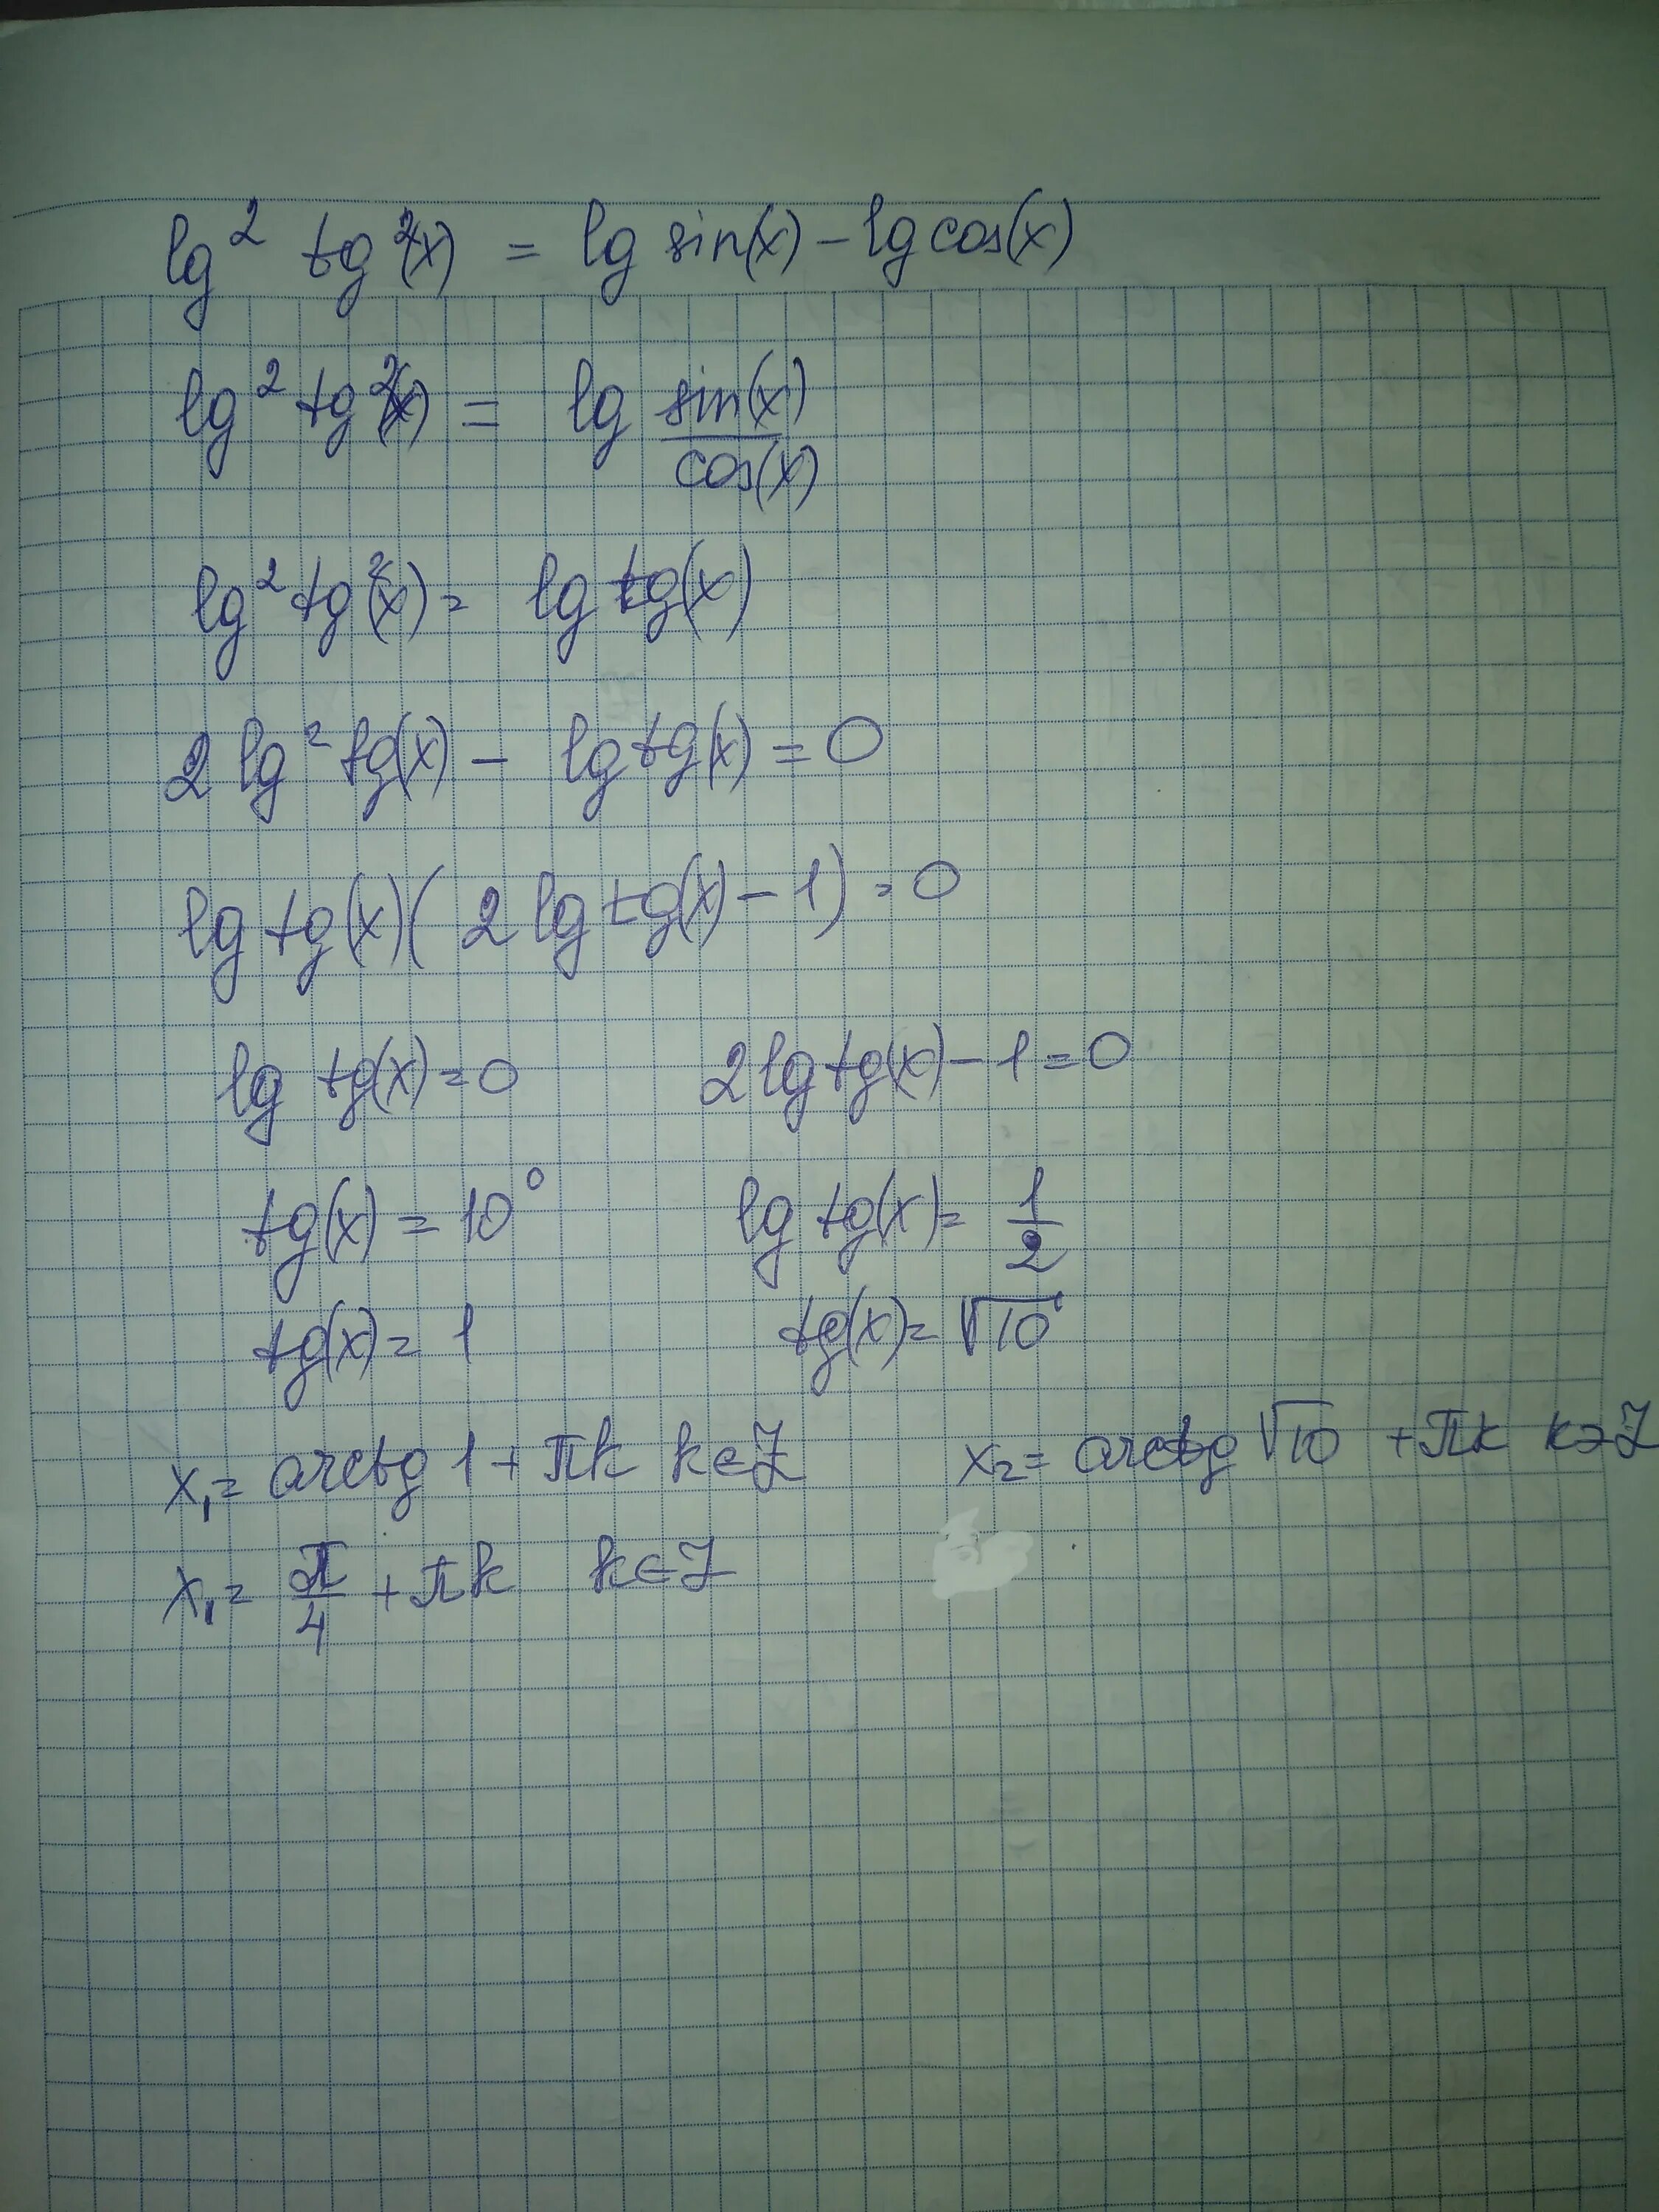 lg² tg²(x) = lg sin(x) − lg cos(x)
lg² tg²(x) = lg sin(x)/cos(x)
lg² tg²(x) = lg tg(x)
2 lg² tg(x) − lg tg(x) = 0
lg tg(x) ( 2 lg tg(x) − 1) = 0
lg tg(x) = 0 2 lg tg(x) − 1 = 0
tg(x) = 10⁰ lg tg(x) = 1/2
tg(x) = 1 tg(x) = √10
x₁ = arctg 1 + πk k∈Z x₂ = arctg √10 + πk k∋Z
x₁ = π/4 + πk k∈Z